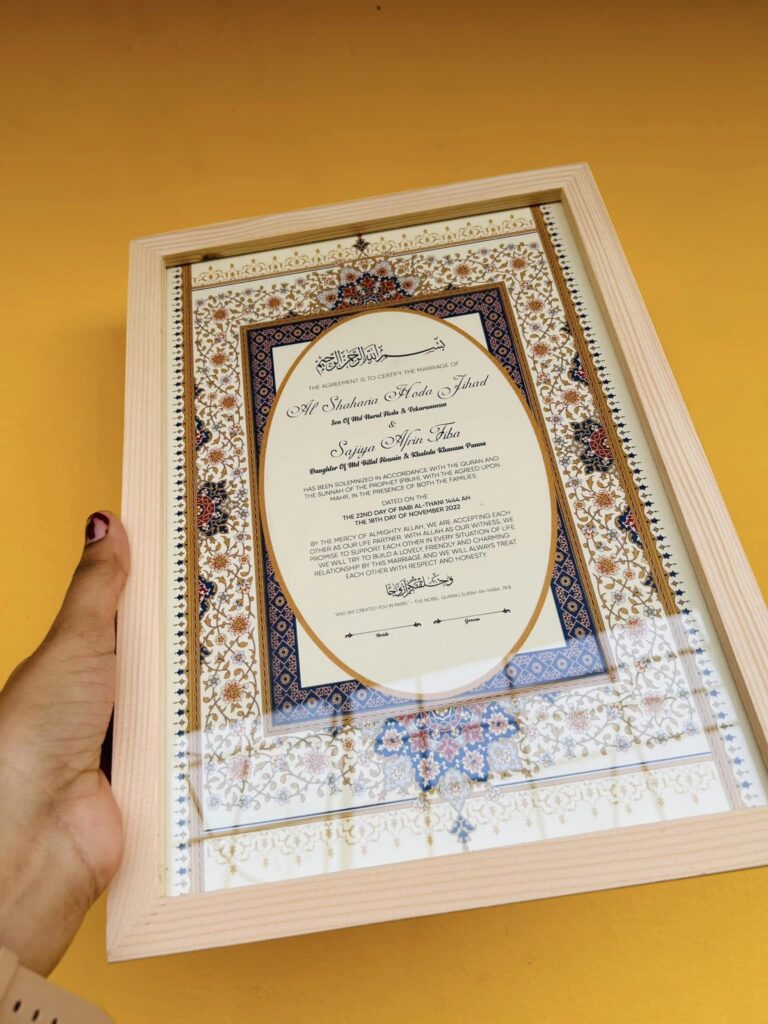 بسم الله الرحمن الرحيم
THE AGREEMENT IS TO CERTIFY THE MARRIAGE OF
Al Shaharia Hoda Jihad
Son Of Md Nurul Hoda & Vekarunnesa
&
Sajiya Afrin Fiba
Daughter Of Md Billal Hossain & Khaleda Khanam Panna
HAS BEEN SOLEMNIZED IN ACCORDANCE WITH THE QURAN AND
THE SUNNAH OF THE PROPHET (PBUH), WITH THE AGREED UPON
MAHR, IN THE PRESENCE OF BOTH THE FAMILIES
DATED ON THE
THE 22ND DAY OF RABI AL-THANI 1444 AH
THE 18TH DAY OF NOVEMBER 2022
BY THE MERCY OF ALMIGHTY ALLAH, WE ARE ACCEPTING EACH
OTHER AS OUR LIFE PARTNER. WITH ALLAH AS OUR WITNESS, WE
PROMISE TO SUPPORT EACH OTHER IN EVERY SITUATION OF LIFE.
WE WILL TRY TO BUILD A LOVELY, FRIENDLY AND CHARMING
RELATIONSHIP BY THIS MARRIAGE AND WE WILL ALWAYS TREAT
EACH OTHER WITH RESPECT AND HONESTY.
وخلقنكم أزوجا
"AND WE CREATED YOU IN PAIRS" - THE NOBEL QURAN | SURAH AN-NABA, 78:8
Bride Groom